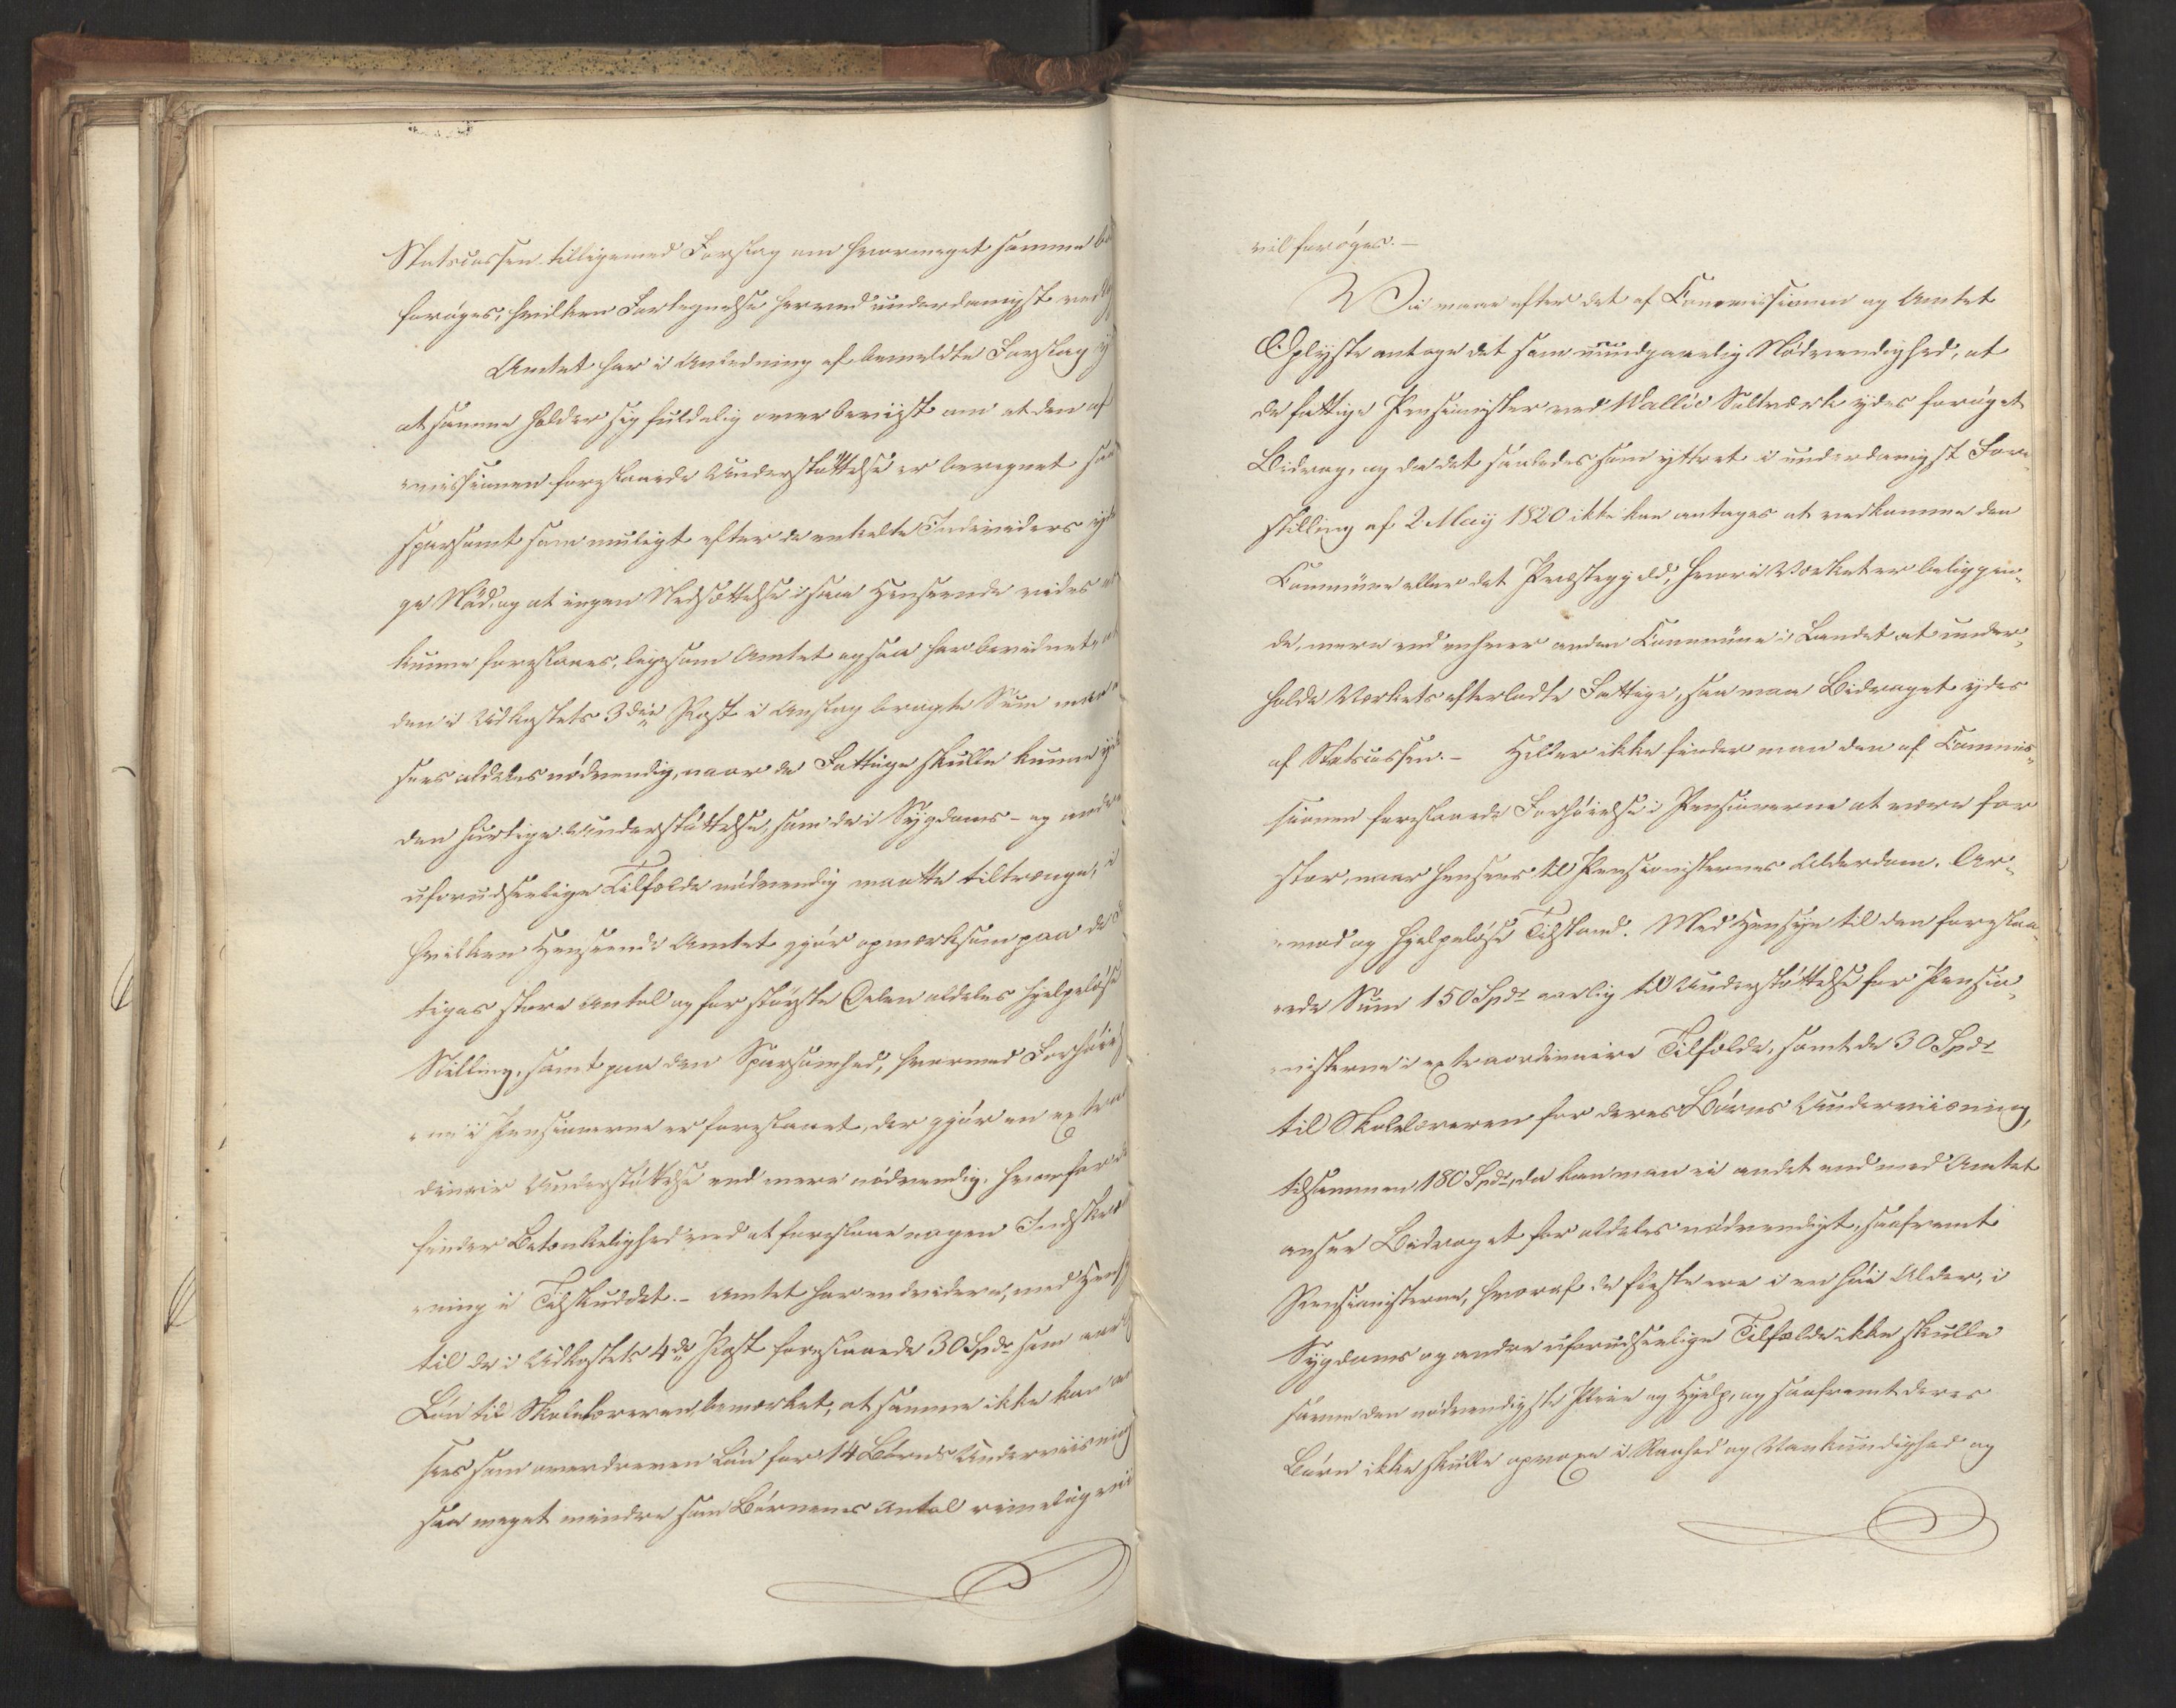 Statscassen tilligemed Forslag om hvormeget samme bø
forøges, hvilken Fortegnelse hermed underdanigst vedl
Amtet har i Anledning af bemeldte Forslag y
at samme holder sig fuldelig overbeviist om at den af
missionen foreslaaede Understøttelse er beregnet saa
sparsomt som muligt efter de enkelte Individers
ge Nød, og at ingen Nedsættelse i saa Henseende vides at
kunne foreslaaes, ligesom Amtet ogsaa har bevidnet, at
den i Udkastets 3die Post i Anslag bragte Sum maae
sees aldeles nødvendig, naar de Fattige skulle kunne
den hurtige Understøttelse, som de i Sygdoms- og andre
uforudseelige Tilfælde nødvendig maatte tiltrænge, i
hvilken Henseende Amtet gjør opmærksom paa de
tiges store Antal og for største Delen aldeles hjelpeløse
Stilling, samt paa den Sparsomhed, hvormed Forhøiel
ne i Pensionerne er foreslaaet, der gjør en extra
dinair Understøttelse end mere nødvendig, hvorfor
finder Betænkelighed ved at foreslaae nogen Indskræ
ning i Tilskuddet. - Amtet har endvidere, med Hensy
til de i Udkastets 4de Post foreslaaede 30 Spdr som aarl
Løn til Skolelæreren, bemærket, at samme ikke kan an
sees som overdreven Løn for 14 Børns Underviisning
saa meget mindre som Børnenes Antal rimeligvii
vil forøges. -
Vi maae efter det af Commissionen og Amtet
Oplyste antage det som uundgaaelig Nødvendighed, at
de fattige Pensionister ved Wallöe Saltværk ydes forøget
Bidrag, og da det saaledes som yttret i underdanigst Fore„
stilling af 2 May 1820 ikke kan antages at vedkomme den
Commune eller det Præstegjeld, hvori Værket er beliggen„
de, mere end enhver anden Commune i Landet at under„
holde Værkets efterladte Fattige, saa maa Bidraget ydes
af Statscassen. - Heller ikke finder man den af Commis„
sionen foreslaaede Forhøielse i Pensionerne at være for
stor, naar hensees til Pensionisternes Alderdom, Ar„
„mod og hjelpeløse Tilstand. Med Hensyn til den foreslaa„
„ede Sum 150 Spdr aarlig til Understøttelse for Pensio„
„nisterne i extraordinaire Tilfælde, samt de 30 Spdr
til Skolelæreren for deres Børns Underviisning,
tilsammen 180 Spdr, da kan man ei andet end med Amtet
ansee Bidraget for aldeles nødvendigt, saafremt
Pensionisterne, hvoraf de fleste ere i en høi Alder, i
Sygdoms og andre uforudseelige Tilfælde ikke skulle
savne den nødvendigste Pleie og Hjelp, og saafremt deres
Børn ikke skulle opvoxe i Raahed og Vankundighed og